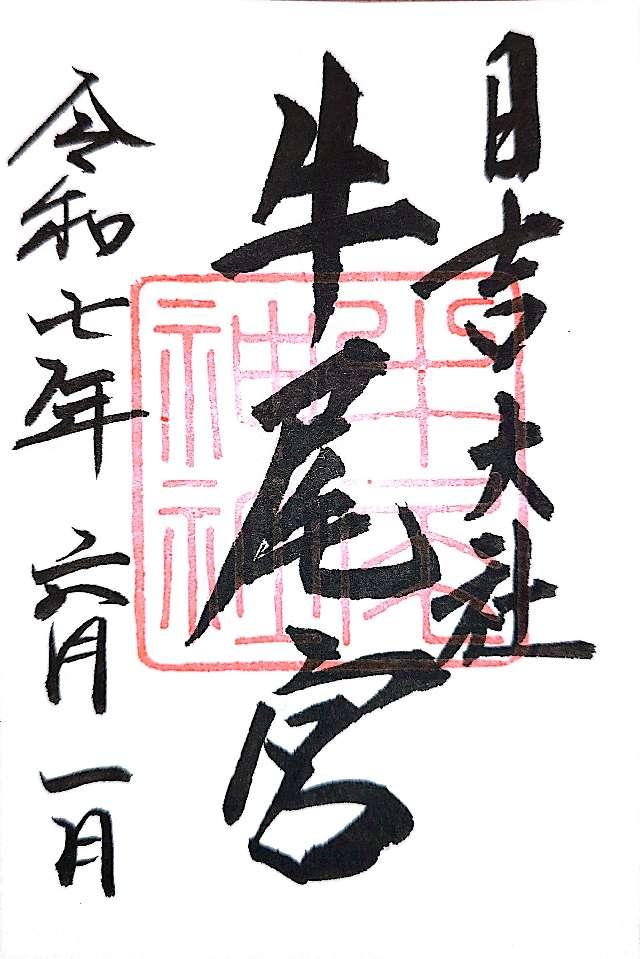 日吉大社
牛尾宮
牛尾
神社
令和七年 六月 一日